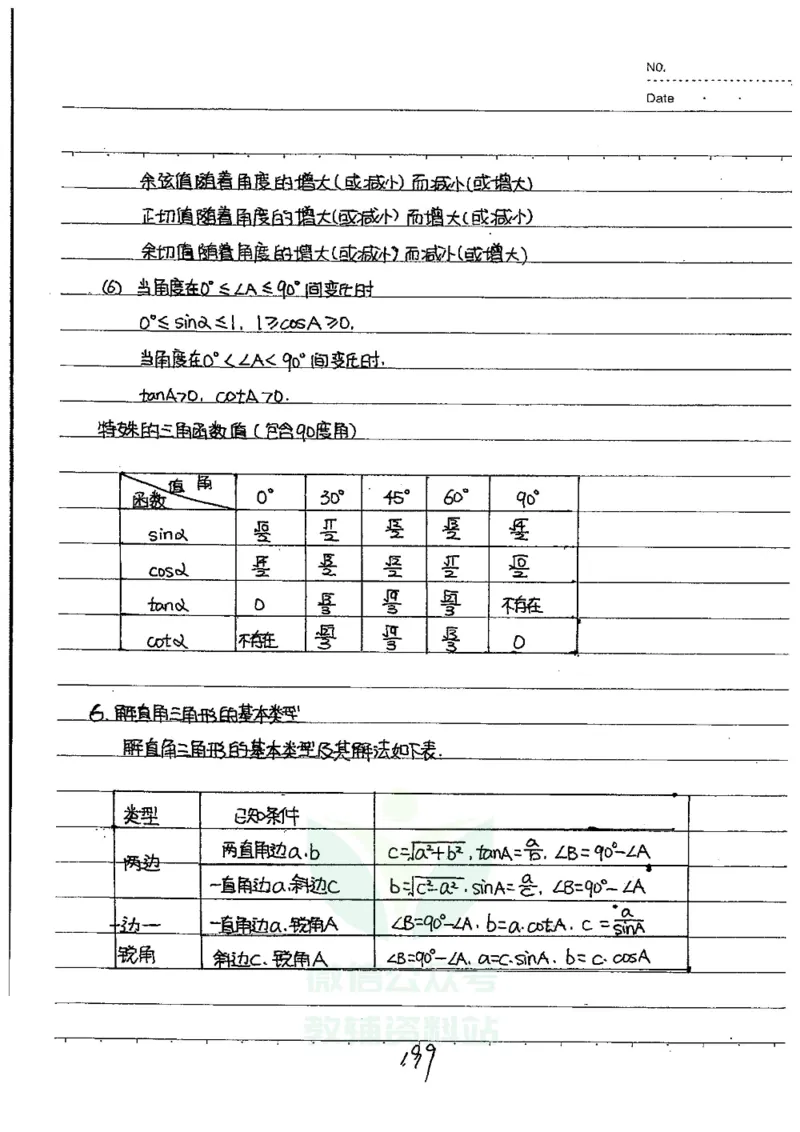 NO.
Date
余弦值随着角度的增大(或减小)而减小(或增大)
正切值随着角度的增大(或减小)而增大(或减小)
余切值随着角度的增大(或减小)而减小(或增大)
(6) 当角度在0°≤∠A≤90°间变化时
0°≤sinα≤1, 1≥cosA≥0.
当角度在0°<∠A<90°间变化时.
tanA>0, cotA>0.
特殊的三角函数值(包含90度角)
函数 值 角 0° 30° 45° 60° 90°
sinα √0/2 √1/2 √2/2 √3/2 √4/2
cosα √4/2 √3/2 √2/2 √1/2 √0/2
tanα 0 √3/3 √9/3 √27/3 不存在
cotα 不存在 √27/3 √9/3 √3/3 0
6. 解直角三角形的基本类型
解直角三角形的基本类型及其解法如下表.
类型 已知条件
两边 两直角边a.b c=√a²+b², tanA=a/b, ∠B=90°-∠A
一直角边a.斜边c b=√c²-a², sinA=a/c, ∠B=90°-∠A
一边一 一直角边a.锐角A ∠B=90°-∠A, b=a.cotA, c=a/sinA
锐角 斜边c.锐角A ∠B=90°-∠A, a=c.sinA, b=c.cosA
微信公众号
教辅资料站
139